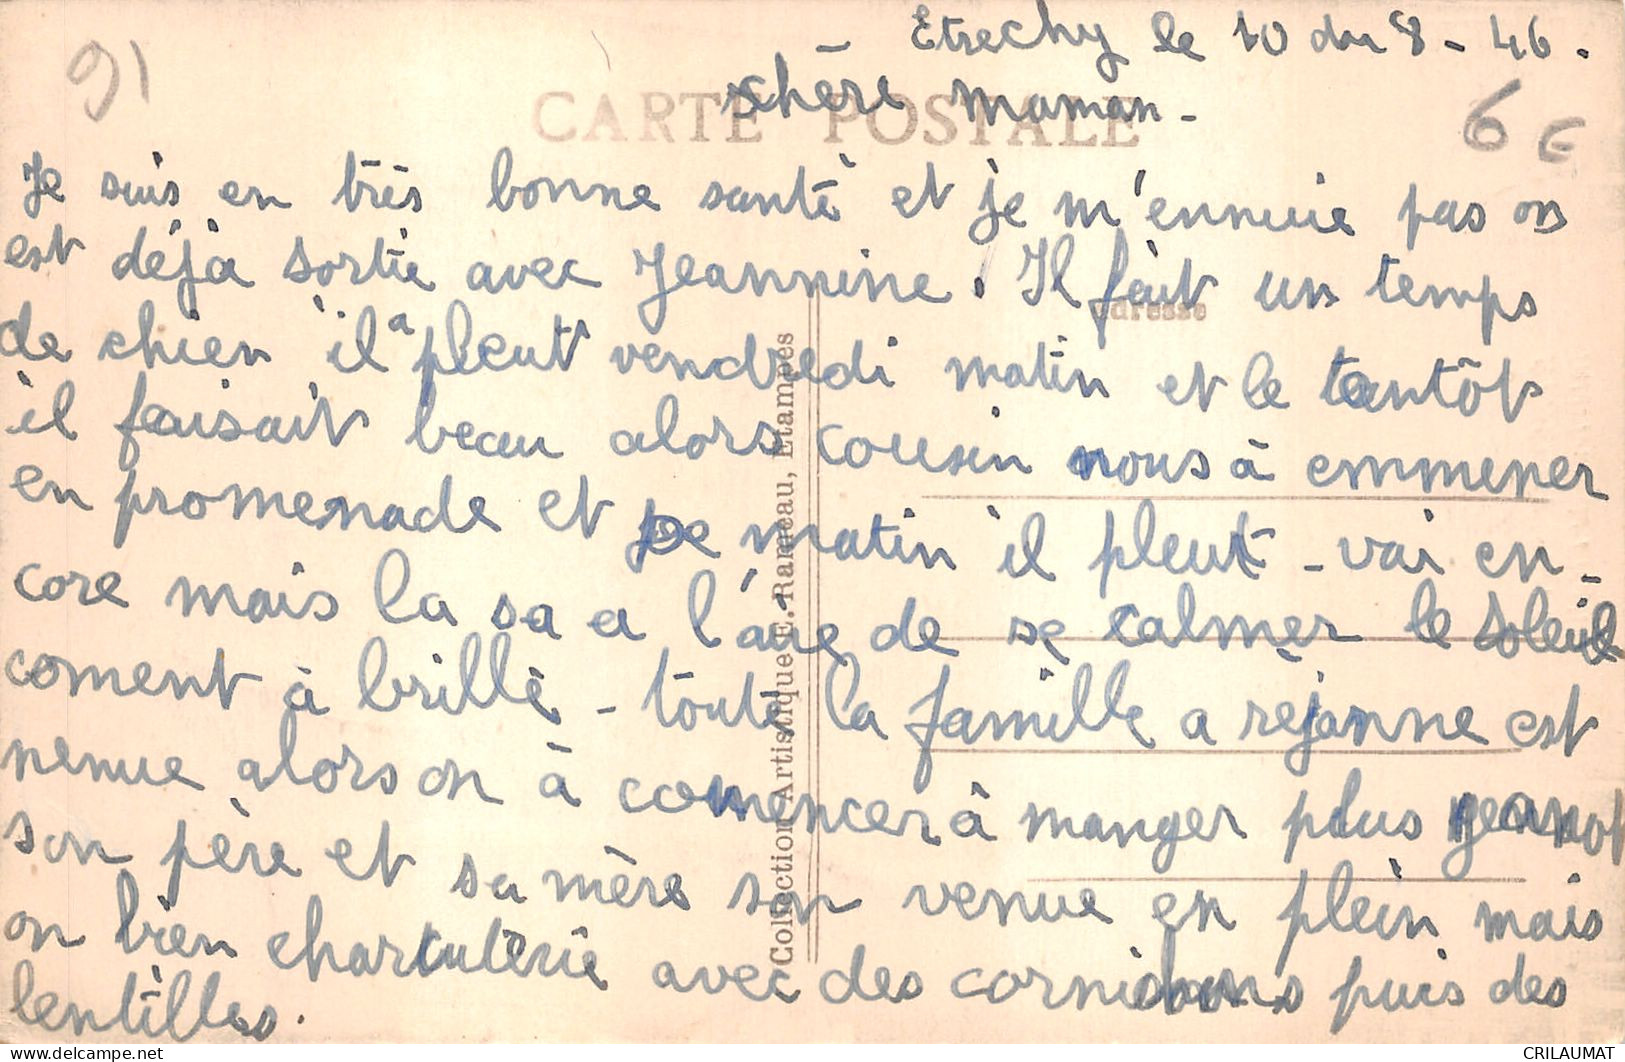 91
Etrechy le 10 du 8 - 46.
CARTE POSTALE
chère maman -
6 €
Je suis en très bonne santé et je m'ennuie pas on
est déjà sortie avec Jeannine. Il fait un temps
adresse
de chien il a pleut vendredi matin et le tantôt
il faisait beau alors cousin nous à emmener
en promenade et matin il pleut - vai en-
core mais la sa a l'aire de se calmer le soleil
coment à brillè - toute la famille a rèjanne est
venue alors on à comencer à manger plus jeannot
son père et sa mère son venue en plein mais
on bien charcuterie avec des cornichons puis des
lentilles.
Collection Artistique E. Rameau, Etampes
CRILAUMAT